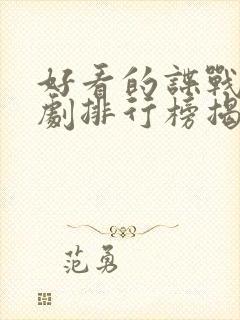 好看的諜戰
劇排行榜揭
范勇